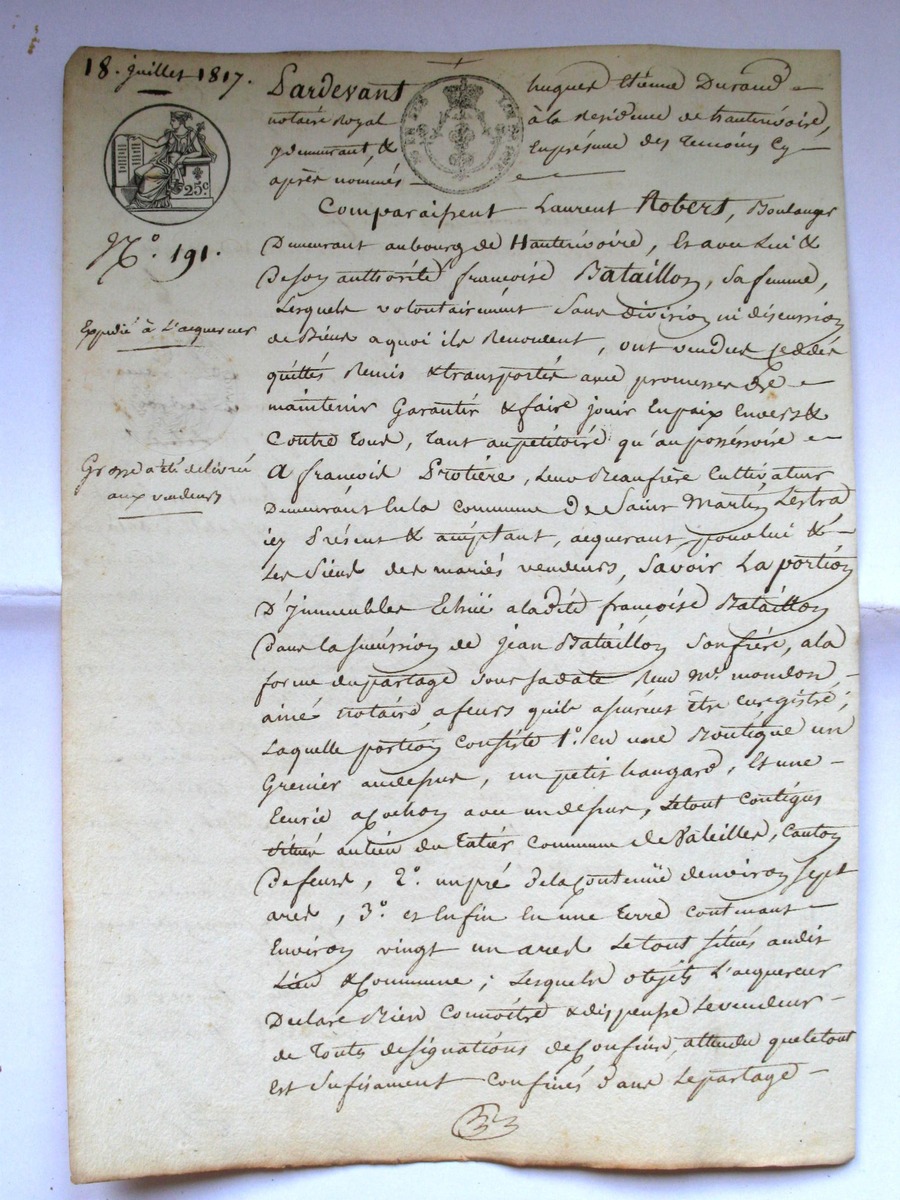 18. juillet 1817.
25c
N.º 191.
Expédié à L'acquereur
Grosse a été delivrée
aux vendeurs
Pardevant hugues Etienne Durand
notaire Royal à la Residence de hauterivoire,
y demeurant, & En présence des Temoins Cy
après nommés
Comparaissent Laurent Robert, Boulanger
Demeurant au bourg de Hauterivoire, Et avec Lui &
De son authorité francoise Bataillon, sa femme,
Lesquels volontairement Sans division ni discussion
de Biens a quoi ils Renoncent, ont vendus ceddés
quittés Remis & transportés avec promesse de
maintenir Garantir & faire jouir En paix Envers &
Contre Tous, Tant au petitoire qu'au possessoire
A francois Protière, Leur Beaufrère Cultivateur
Demeurant En la Commune De Saint Martin Lestra
icy Présent & acceptant, acquerant pour lui &
Les Siens des mariés vendeurs, Savoir La portion
D'jmmeubles Echüe a ladite francoise Bataillon
Dans la succession de jean Bataillon Son frère, a la
forme du partage sous sa date Reçu Me. mondon
ainé notaire a feurs qu'ils assurent être Enregistré;
Laquelle portion Consiste 1º. En une Boutique un
Grenier au dessus, un petit hangard, Et une
Ecurie a Cochon avec un dessus, Le tout Contigus
situés au lieu du Tatér Commune de Valeilles, Canton
De feurs, 2º. un pré de la Contenüe d'environ Sept
ares, 3º. et Enfin En une Terre Contenant
Environ vingt un ares Le tout situés audit
Lieu & Commune; Lesquels objets L'acquereur
Declare Bien Connoître & dispense Le vendeur
de Toutes designations de Confins, attendu que le tout
Est Sufisament Confinés dans Le partage